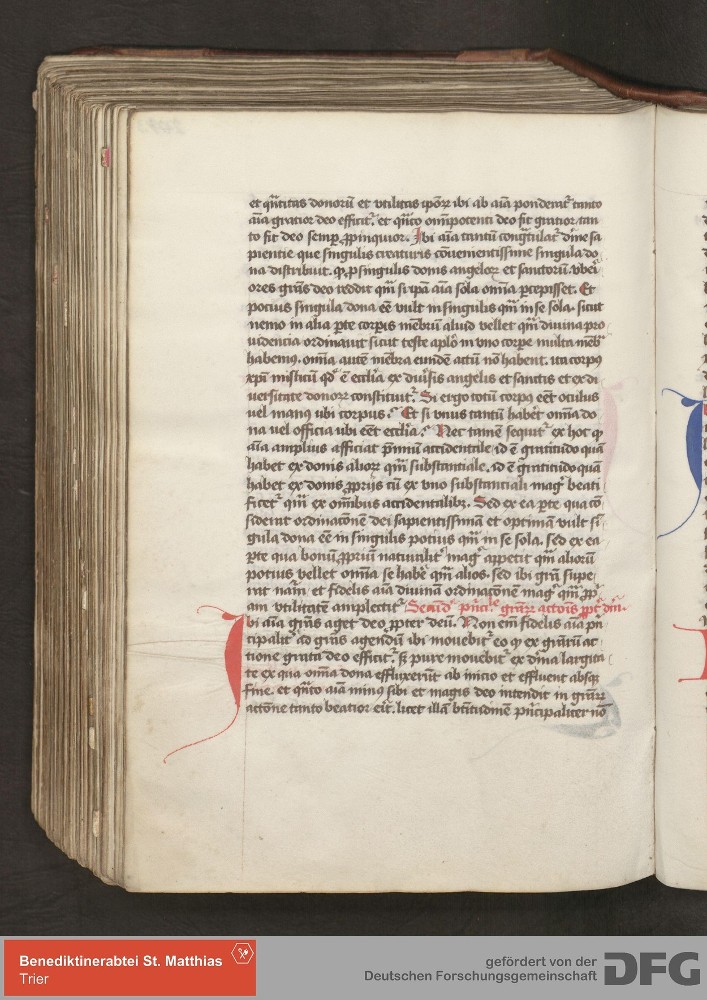 et qntitas donorū et vtilitas ipoꝝ ibi ab aīa ponderat᷑ tanto
aīa gratior deo efficit᷑. et qnto omīpotenti deo fit gratior tan
to fit deo semp ꝓpinquior. Ibi aīa tantū congͣtulat᷑ dīne sa
pientie que singulis creaturis cōuenientissime singula do
na distribuit. ꝙ ꝓ singulis donis angeloꝝ et sanctorū vberi
ores grās deo reddit qm̄ si ipā aīa sola omīa ꝑcepisset. Et
pocius singula dona eē vult in singulis qm̄ in se sola. sicut
nemo in alia ꝑte corpis mēbrū aliud vellet qm̄ diuina pro
uidencia ordinauit sicut teste aplō in vno corpe multa mēbͣ
habemꝰ. omīa autē mēbra eundē actū nō habent. ita corpꝰ
xpī misticū qd̓ ē ecclīa ex diuͥsis angelis et sanctis et ex di
uersitate donoꝝ constituit᷑. Si ergo totū corpꝰ eēt oculus
vel manꝰ ubi corpus? Et si vnus tantū habēt omīa do
na vel officia ubi eēt ecclīa? Nec tamē sequit᷑ ex hoc ꝙ
aīa amplius afficiat p̄miū accidentale. id ē gratitudo quā
habet ex donis alioꝝ qm̄ substantiale. id ē gratitudo quā
habet ex donis ꝓprijs cū ex vno substantiali mag᷑ beati
ficet᷑ qm̄ ex omībus accidentalibꝫ. Sed ex ea ꝑte qua cō
siderat ordinacōnē dei sapientissimā et optimā vult sī
gula dona eē in singulis potius qm̄ in se sola. sed ex ea
ꝑte qua bonū ꝓpriū naturalit᷑ mag᷑ appetit qm̄ aliorū
potius vellet omīa se habe᷑ qm̄ alios. sed ibi grā supe
rat nām et fidelis aīa diuinā ordinacōnē mag᷑ qm̄ ꝓpͥ
am vtilitatē amplectit᷑ Scͩm pncͥ grāꝝ actōis ꝓpt᷑ dm̄.
Ibi aīa grās aget deo ꝓpter deū. Non em̄ fidelis aīa pn
cipalit᷑ ad grās agendū ibi mouebit᷑ eo ꝙ ex grārū ac
tione grata deo efficit᷑. sꝫ pure mouebit᷑ ex dīna largita
te ex qua omīa dona effluxerūt ab inicio et effluent absqꝫ
fine. et qnto aīa minꝰ sibi et magis deo intendit in grāꝝ
actōne tanto beatior erit. licet illā btītudinē pncipaliter nō
Benediktinerabtei St. Matthias
Trier
gefördert von der
Deutschen Forschungsgemeinschaft
DFG